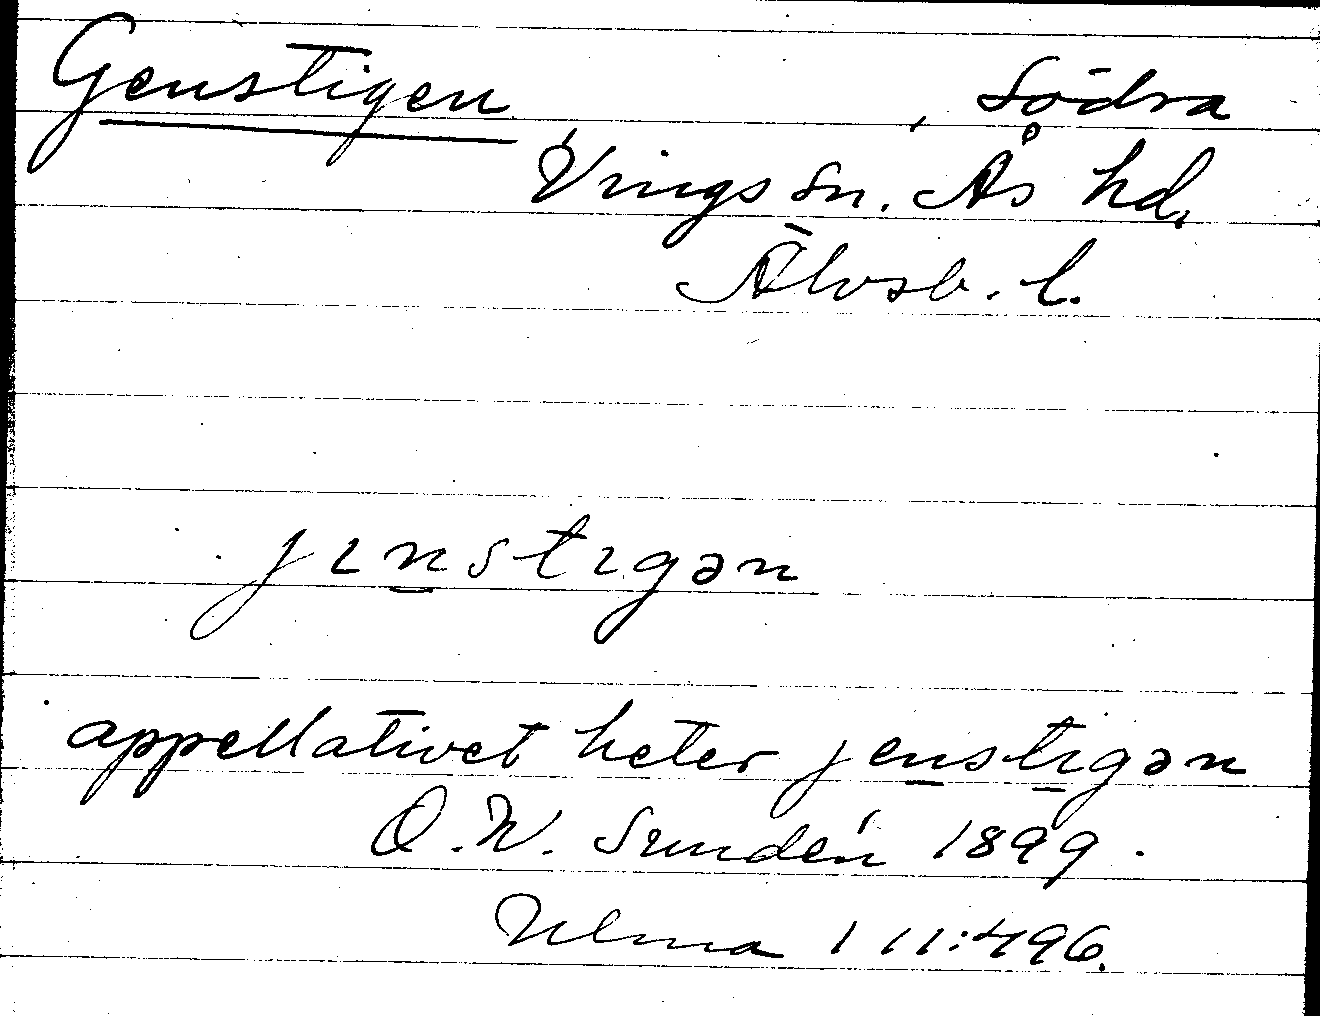 Genstigen, Södra
Vings sn. Ås hd,
Älvsb. l.
jɩnstɩgən
appellativet heter jenstɩgən
O.W. Sundén 1899.
Ulma 111:496.